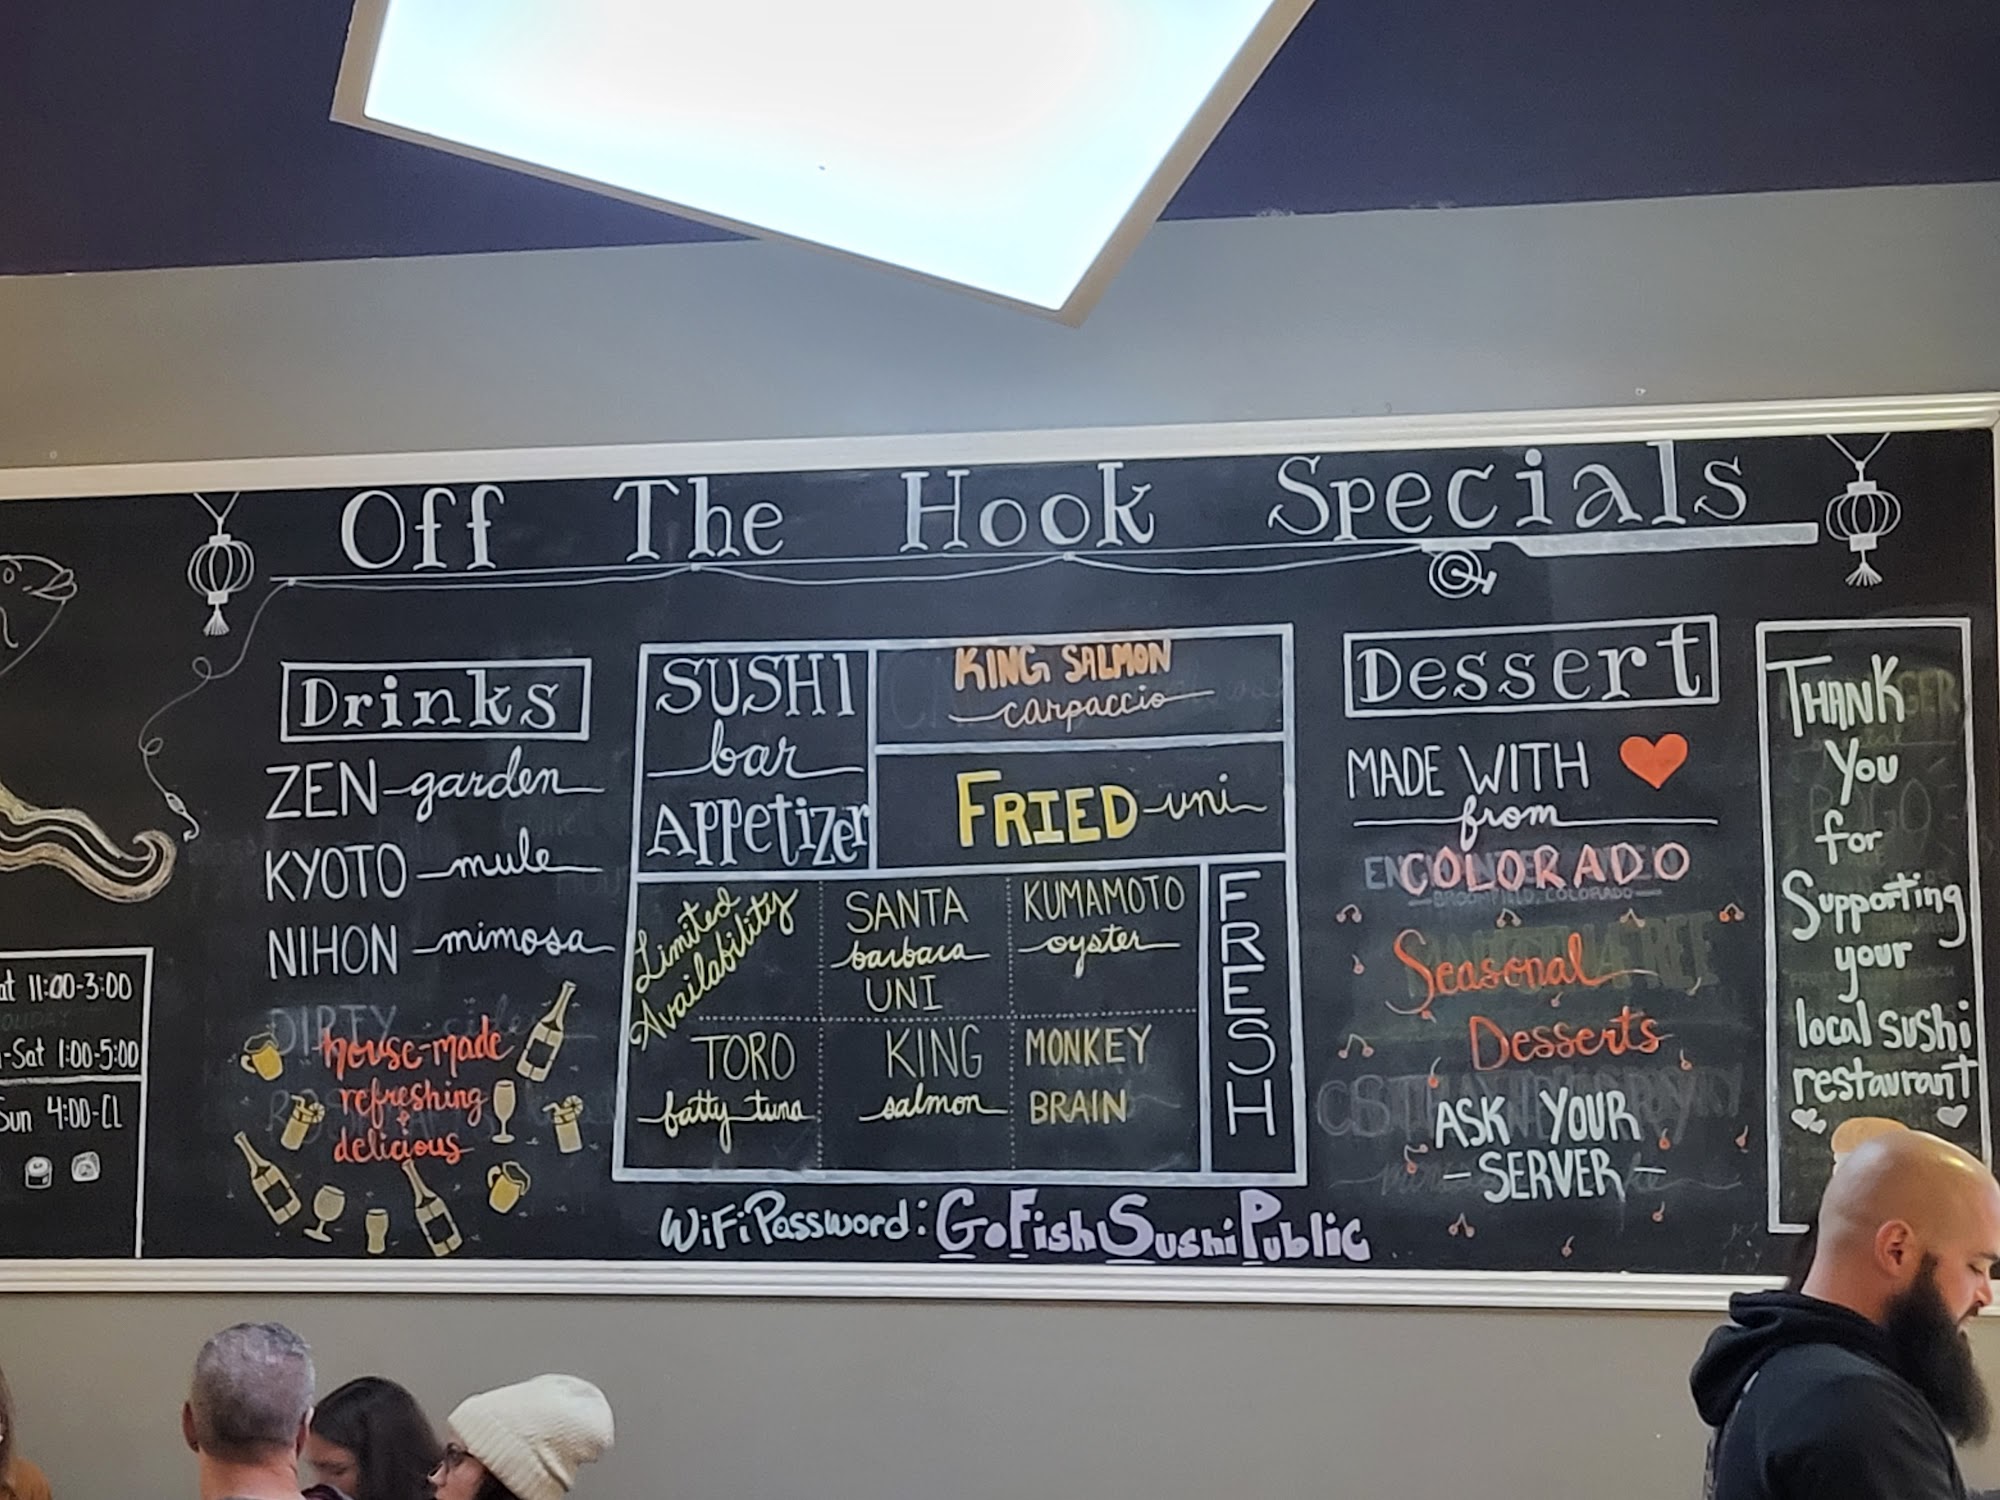 Off The Hook Specials
Drinks
ZEN garden
KYOTO mule
NIHON mimosa
DIRTY
house-made
refreshing
&
delicious
at 11:00-3:00
-Sat 1:00-5:00
Sun 4:00-CL
SUSHI
bar
APPetizer
KING SALMON
carpaccio
FRIED uni
Limited
Availability
SANTA
barbara
UNI
KUMAMOTO
oyster
TORO
fatty tuna
KING
salmon
MONKEY
BRAIN
FRESH
WiFi Password: GoFishSushiPublic
Dessert
MADE WITH
from
COLORADO
BROOMFIELD, COLORADO
Seasonal
Desserts
ASK YOUR
- SERVER -
THANK
You
for
Supporting
your
local sushi
restaurant